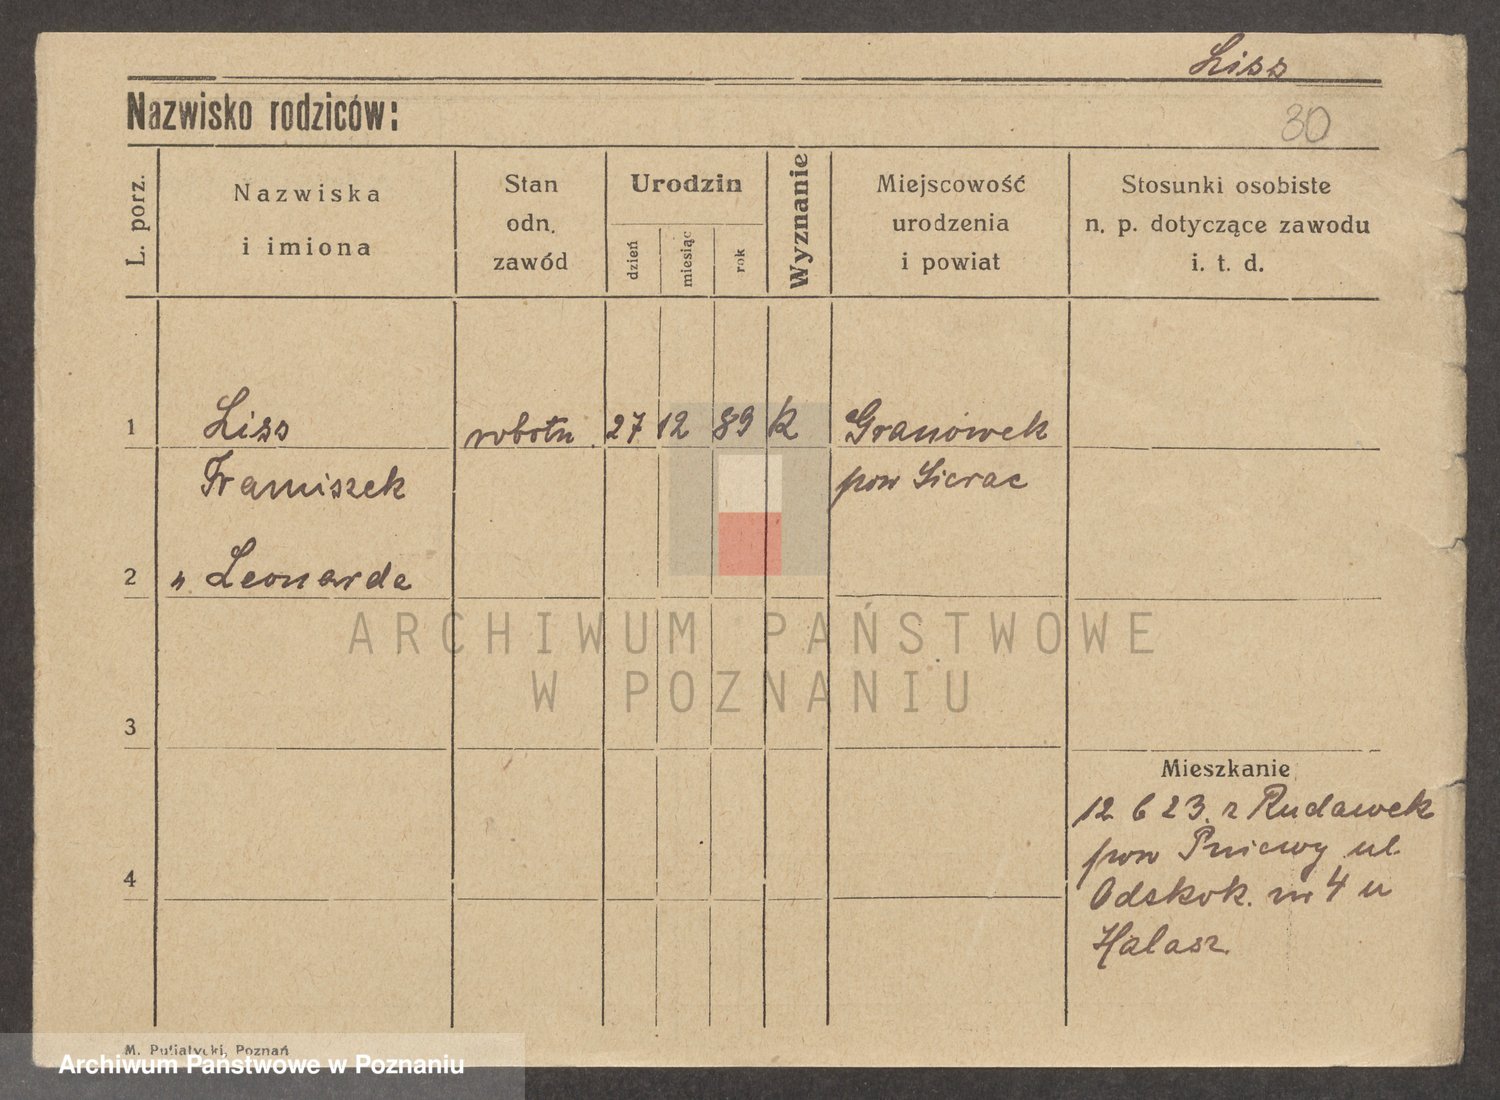 Liss
Nazwisko rodziców:
30
L. porz.
Nazwiska
i imiona
Stan
odn.
zawód
Urodzin
dzień
miesiąc
rok
Wyznanie
Miejscowość
urodzenia
i powiat
Stosunki osobiste
n. p. dotyczące zawodu
i. t. d.
1 Liss robotn. 27 12 89 k Granówek
Franciszek pow Sierac
2 " Leonarda
ARCHIWUM PAŃSTWOWE
W POZNANIU
3
Mieszkanie
12 6 23. z Rudawek
pow Pniewy ul.
4 Odskok. nr 4 u
Halasz
M. Putiatycki, Poznań
Archiwum Państwowe w Poznaniu